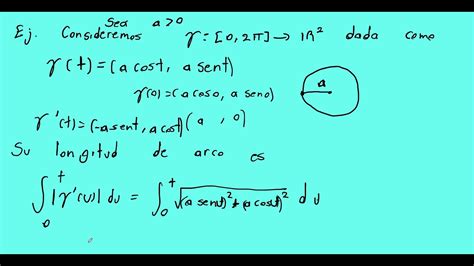 Sea a>0
Ej. Consideremos γ: [0, 2π] → ℝ² dada como
γ(t) = (a cost, a sent)
γ(0) = (a cos0, a sen0)
a
γ'(t) = (-a sent, a cost) (a , 0)
Su longitud de arco es
∫₀ᵗ |γ'(u)| du = ∫₀ᵗ √((a senu)² + (a cosu)²) du